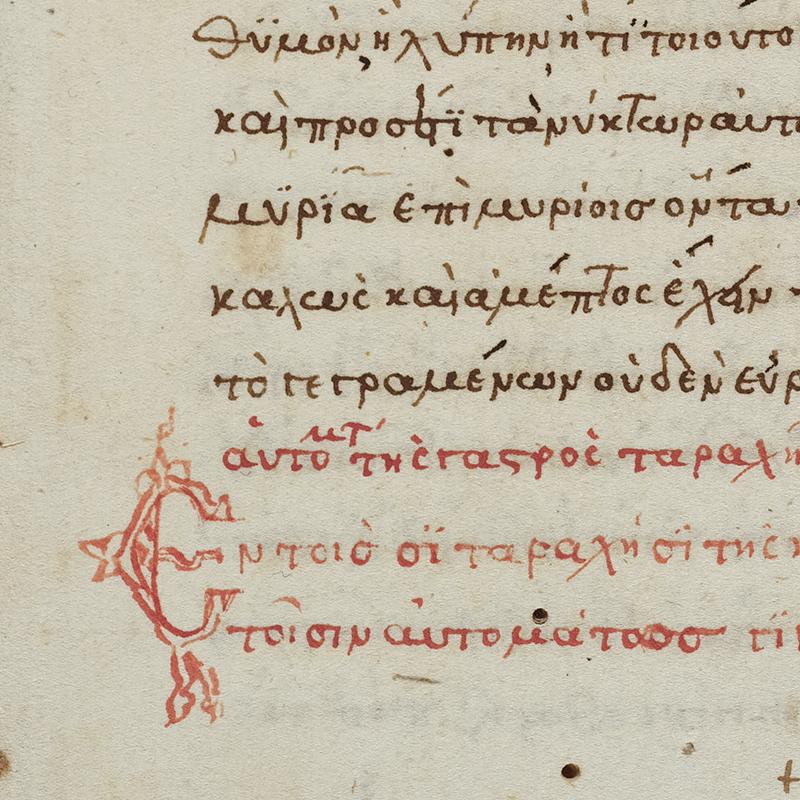 θϋμὸν ἢ λύπην ἤ τι τοιοῦτο
καὶ προσέτϊ τὰ νύκτωρ αυτ
μϋρία ἐπὶ μυρίοις ὄντα
καλῶς καὶ ἀμέμπτος ἔχειν
τὸ τετραμένων οὐδὲν εὑρ
αὐτομτ τῆς γαστρὸς ταραχή
Ἐν τοῖς σϊ ταραχῆσϊ τῆς κ
τοῖσιν αυτομάτοισ τϊ